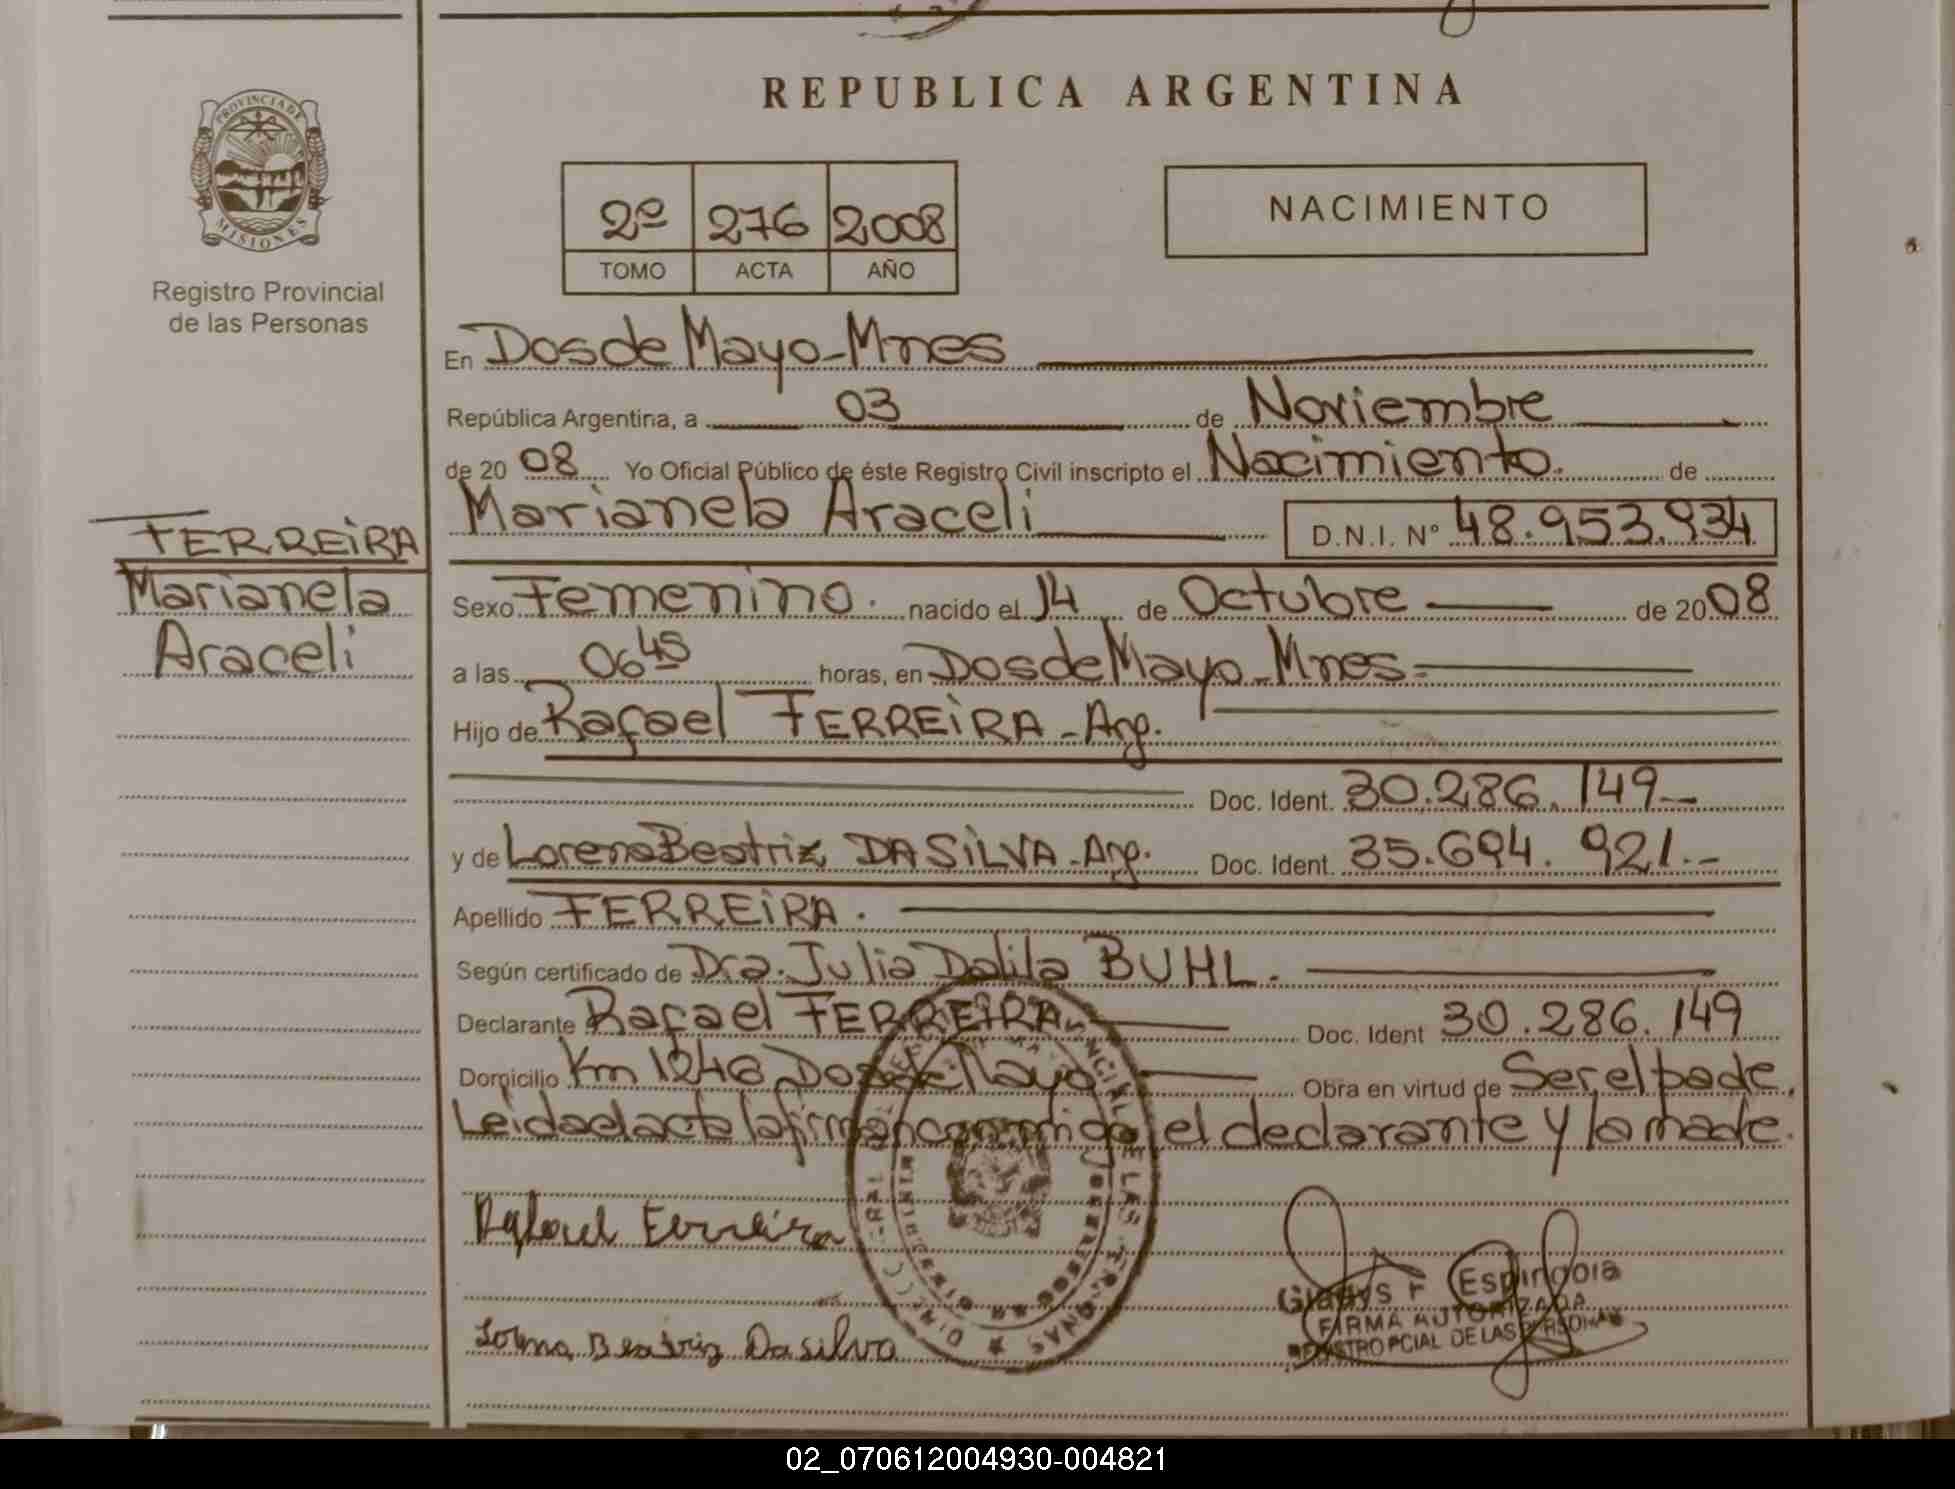 REPUBLICA ARGENTINA
PROVINCIA DE
MISIONES
Registro Provincial
de las Personas
2º 276 2008
TOMO ACTA AÑO
NACIMIENTO
En Dos de Mayo-Mnes
República Argentina, a 03 de Noviembre
de 20 08 Yo Oficial Público de éste Registro Civil inscripto el Nacimiento. de
Marianela Araceli D.N.I. Nº 48.953.934
FERREIRA
Marianela
Araceli
Sexo Femenino. nacido el 14 de Octubre de 2008
a las 06 45 horas, en Dos de Mayo-Mnes-
Hijo de Rafael FERREIRA-Arg.
Doc. Ident. 30.286.149-
y de Lorena Beatriz DA SILVA-Arg. Doc. Ident. 35.694.921.-
Apellido FERREIRA.
Según certificado de Dra. Julia Dalila BUHL.
Declarante Rafael FERREIRA Doc. Ident 30.286.149
Domicilio Km 1246 Dos de Mayo Obra en virtud de Ser el padre.
Leida el acta la firman conmigo el declarante y la madre.
Rafael Ferreira
Lorena Beatriz Da silva
Gladys F Espindola
FIRMA AUTORIZADA
REGISTRO PCIAL DE LAS PERSONAS
02_070612004930-004821